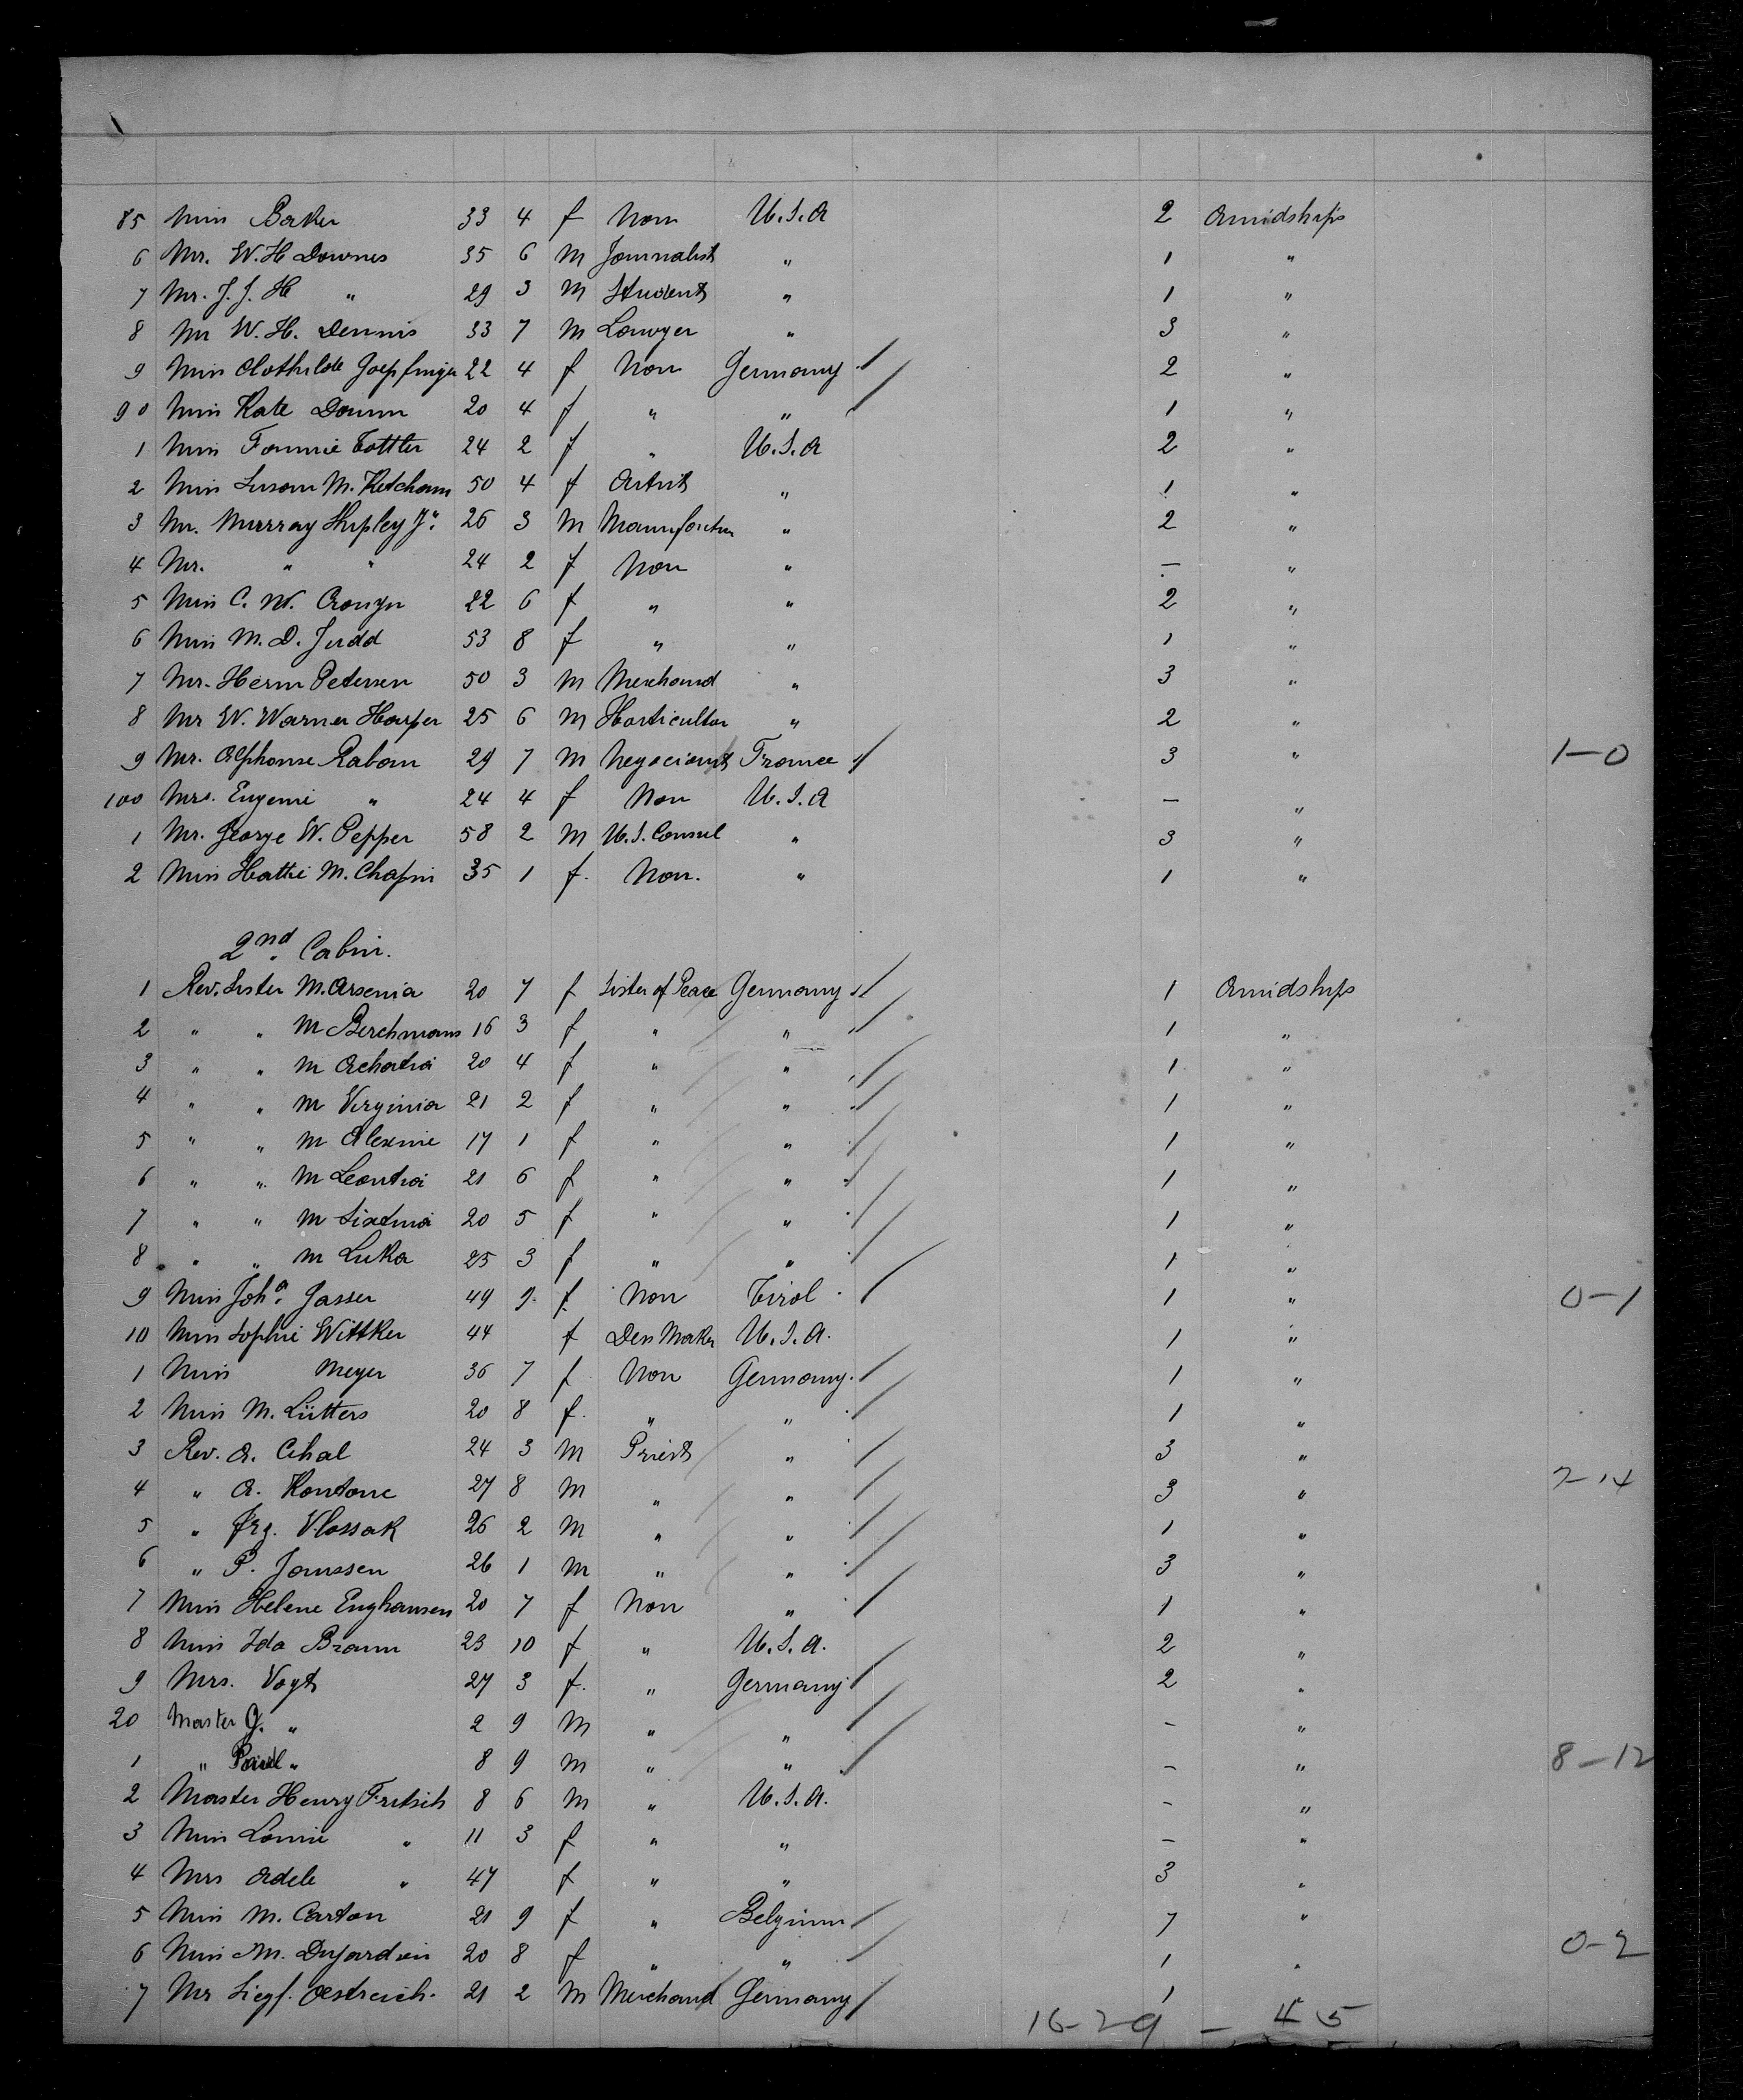 85 Miss Baker 33 4 f Non U.S.A 2 Amidships
6 Mr. W. H Downes 35 6 M Journalist " 1 "
7 Mr. J. J. H " 29 3 M Student " 1 "
8 Mr W. H. Dennis 33 7 M Lawyer " 3 "
9 Miss Clothilde 22 4 f Non Germany 2 "
90 Miss Kate 20 4 f " " 1 "
1 Miss Fannie Cottler 24 2 f " U.S.A 2 "
2 Miss Susan M. Ketcham 50 4 f Artist " 1 "
3 Mr. Murray Shipley Jr. 26 3 M " 2 "
4 Mr. " " 24 2 f Non " — "
5 Miss C. W. Cronyn 22 6 f " " 2 "
6 Miss M. D. Judd 53 8 f " " 1 "
7 Mr. Herm Petersen 50 3 M Merchand " 3 "
8 Mr W. Warner Harper 25 6 M Horticultur " 2 "
9 Mr. Alphonse Raban 29 7 M Negociant France 3 " 1-0
100 Mrs. Eugenie " 24 4 f Non U.S.A — "
1 Mr. George W. Pepper 58 2 M U.S. Consul " 3 "
2 Miss Hattie M. Chapin 35 1 f. Non. " 1 "
2nd Cabin.
1 Rev. Sister M. Arsenia 20 7 f Sister of Peace Germany 1 Amidships
2 " " M Berchmans 16 3 f " " 1 "
3 " " M Achatia 20 4 f " " 1 "
4 " " M Virginia 21 2 f " " 1 "
5 " " M Alexine 17 1 f " " 1 "
6 " " M Leontia 21 6 f " " 1 "
7 " " M Sixtina 20 5 f " " 1 "
8 " " M Luka 25 3 f " " 1 "
9 Miss Joha. Gasser 49 9 f Non Tirol 1 " 0-1
10 Miss Sophie Wittker 44 f U.S.A. 1 "
1 Miss Meyer 36 7 f Non Germany. 1 "
2 Miss M. Lütters 20 8 f. " " 1 "
3 Rev. A. Cihal 24 3 M Priest " 3 "
4 " A. 27 8 M " " 3 " 2-14
5 " Vlossak 26 2 M " " 1 "
6 " P. Janssen 26 1 M " " 3 "
7 Miss Helene Enghausen 20 7 f Non " 1 "
8 Miss Ida Braun 23 10 f " U.S.A. 2 "
9 Mrs. Vogt 27 3 f. " Germany 2 "
20 Master G. " 2 9 M " " - "
1 " Paul " 8 9 M " " - " 8-12
2 Master Henry Fritsch 8 6 M " U.S.A. - "
3 Miss " 11 3 f " " - "
4 Mrs Adele " 47 f " " 3 "
5 Miss M. Carton 21 9 f " Belgium 7 "
6 Miss M. Dujardin 20 8 f " " 1 " 0-2
7 Mr Siegf. Oestreich. 21 2 M Merchand Germany 1
16-29 — 45